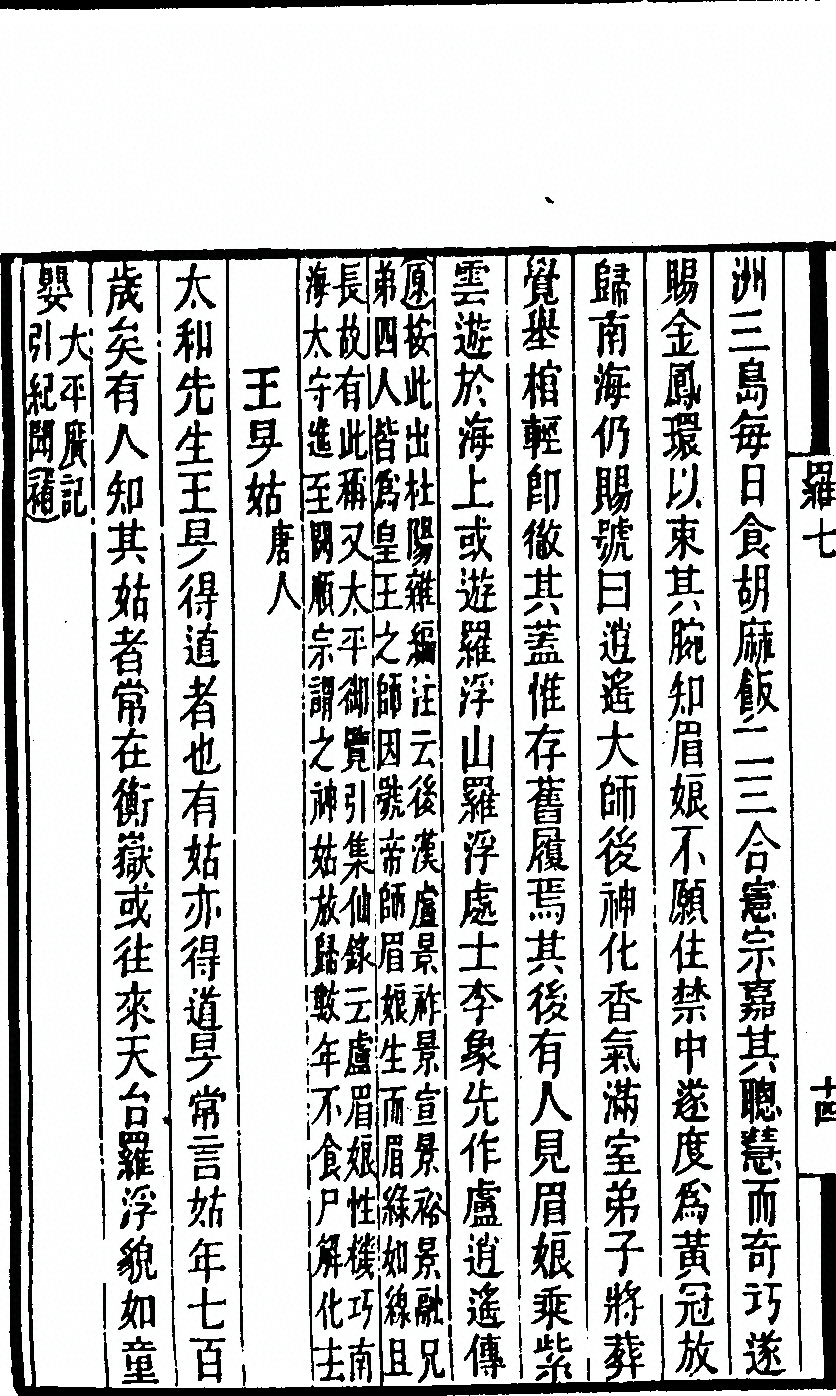 羅七
十四
洲三島每日食胡麻飯二三合憲宗嘉其聰慧而奇巧遂
賜金鳳環以束其腕知眉娘不願住禁中遂度爲黃冠放
歸南海仍賜號曰逍遙大師後神化香氣滿室弟子將葬
覺舉棺輕卽徹其蓋惟存舊履焉其後有人見眉娘乘紫
雲遊於海上或遊羅浮山羅浮處士李象先作盧逍遙傳
原按此出杜陽雜編注云後漢盧景祚景宣景裕景融兄
弟四人皆爲皇王之師因號帝師眉娘生而眉綠如線且
長故有此稱又太平御覽引集仙錄云盧眉娘性機巧南
海太守進至闕順宗謂之神姑放歸數年不食尸解化去
王旻姑唐人
太和先生王旻得道者也有姑亦得道旻常言姑年七百
歲矣有人知其姑者常在衡嶽或往來天台羅浮貌如童
嬰大平廣記
引紀聞補